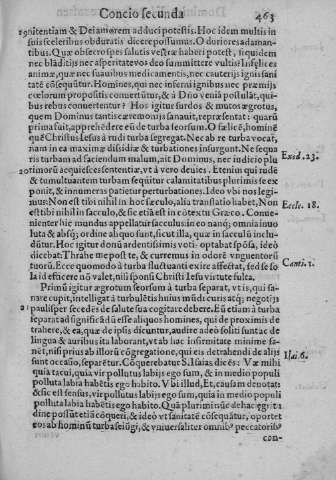 Concio secunda
463
19 nitentiam & Deiamorem adduci potestis. Hoc idem multis in
suis sceleribus obduratis dicere possumus. O duriores adaman-
tibus. Quæ obsecro spes salutis vestræ haberi potest, siquidem
nec blāditijs nec asperitate vos deo summittere vultis? Infelices
animæ, quæ nec suauibus medicamentis, nec cauterijs ignis sani
tatē cōsequūtur. Homines, qui nec inferni ignibus nec præmijs
cœlorum propositis conuertūtur, & à Dño veniā postulāt, qui-
bus rebus conuertentur? Hoc igitur surdos & mutos ægrotus,
quem Dominus tantis cæremonijs sanauit, repræsentat: quarū
prima fuit, apprehēdere eū de turba seorsum. O fœlicē hominē
quē Christus Iesus à rudi turba segregat. Nec ab re turba vocat,
nam in ea maximæ dissidiæ & turbationes insurgunt. Ne sequa
ris turbam ad faciendum malum, ait Dominus, nec iudicio plu
Exod. 23.
20 rimorū acquiesces sententiæ, vt à vero deuies. Etenim qui rude
& tumultuantem turbam sequitur calamitatibus plurimis se ex
ponit, & innumeras patietur perturbationes. Ideo vbi nos legi-
mus: Non est tibi nihil in hoc sæculo, alia translatio habet, Non
est tibi nihil in sacculo, & sic etiā est in cōtextu Græco. Conue-
Eccle. 18.
nienter hic mundus appellatur sacculus: in eo nanq; omnia inuo
luta & absq; ordine aliquo sunt, sicut illa, quæ in sacculū inclu-
dūtur. Hoc igitur donū ardentissimis voti optabat spōsa, ideò
dicebat. Thrahe me post te, & curremus in odorē vnguentorū
tuorū. Ecce quomodo à turba fluctuanti exire affectat, sed se so
Canti. 1.
la id efficere nō valet, nisi sponsi Christi Iesu virtute fulta.
Primū igitur ægrotum seorsum à turba separat, vt is, qui sana-
re cupit, intelligat à turbulētis huius mūdi curis atq; negotijs
21 paulisper secedēs de salute sua cogitare debere. Eū etiam à turba
separat ad significādū esse aliquos homines, qui de proximis de
trahere, & ea, quæ de ipsis dicuntur, audire adeò soliti suntac de
lingua & auribus ita laborant, vt ab hac infirmitate minime sa-
nēt, nisi prius ab illorū cōgregatione, qui eis detrahendi de alijs
sunt occasio, separētur. Cōquerebatur S. Isaias dicēs: Væ mihi
Isai. 6.
quia tacui, quia vir pollutus labijs ego sum, & in medio populi
polluta labia habētis ego habito. Vbi illud, Et, causam denotat
& sic est sensus, vir pollutus labijs ego sum, quia in medio populi
polluta labia habētis ego habito. Quā plurimi nūc de hac ęgritu
dine possūt etiā cōqueri, & ideò vt sanitatē cōsequātur, oportet
eos ab hominū turba seiūgi, & vniuersaliter omnibꝰ peccatoribꝰ
con-